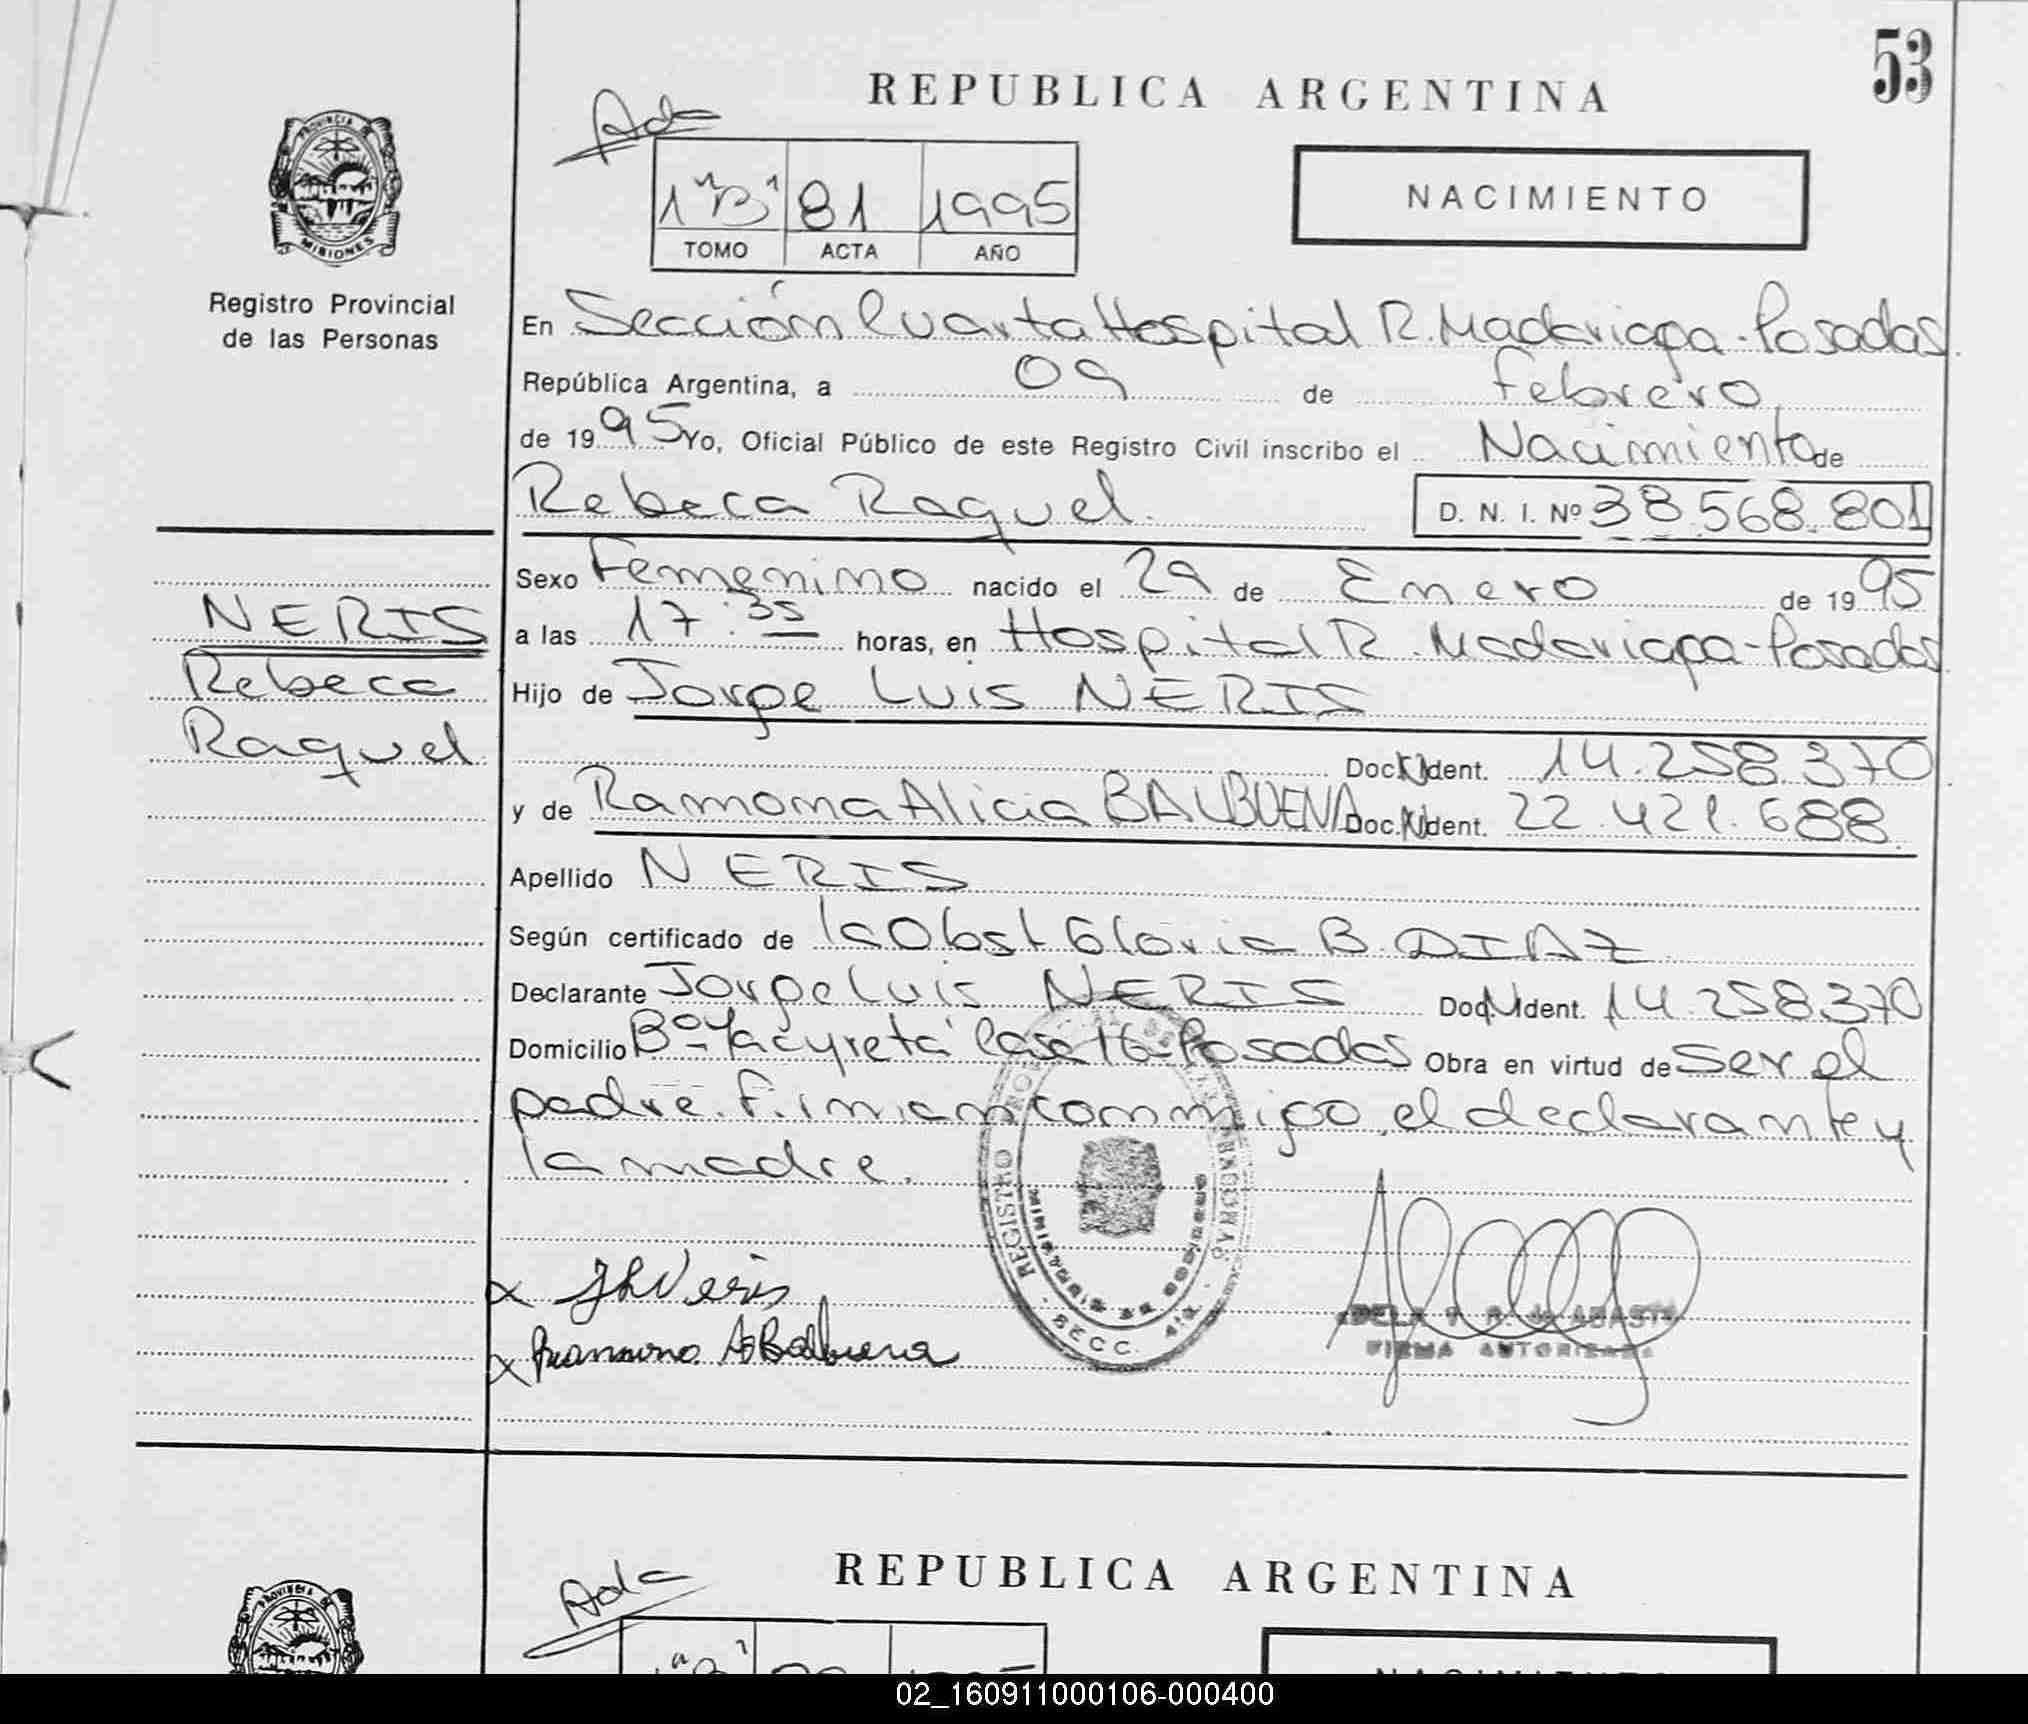 53
REPUBLICA ARGENTINA
Ada
PROVINCIA DE
MISIONES
1 "B" 81 1995
TOMO ACTA AÑO
NACIMIENTO
Registro Provincial
de las Personas
En Sección Cuarta Hospital R. Madariaga - Posadas
República Argentina, a 09 de Febrero,
de 1995 Yo, Oficial Público de este Registro Civil inscribo el Nacimiento de
Rebeca Raquel. D. N. I. Nº 38.568.801
Sexo Femenino nacido el 29 de Enero de 1995
NERIS
a las 17:35 horas, en Hospital R. Madariaga - Posadas
Rebeca
Hijo de Jorge Luis NERIS
Raquel
Doc. Ident. 14.258.370
y de Ramona Alicia BALBUENA Doc. Ident. 22.421.688
Apellido NERIS
Según certificado de la Obst Gloria B. DIAZ
Declarante Jorge Luis NERIS Doc. Ident. 14.258.370
Domicilio Bº Yacyretá Casa 16 - Posadas Obra en virtud de ser el
padre. Firman conmigo, el declarante y
la madre.
REGISTRO
SECC. 4ta.
x JLNeris
x Ramona A Balbuena
FIRMA AUTORIZADA
REPUBLICA ARGENTINA
Ada
PROVINCIA
02_160911000106-000400